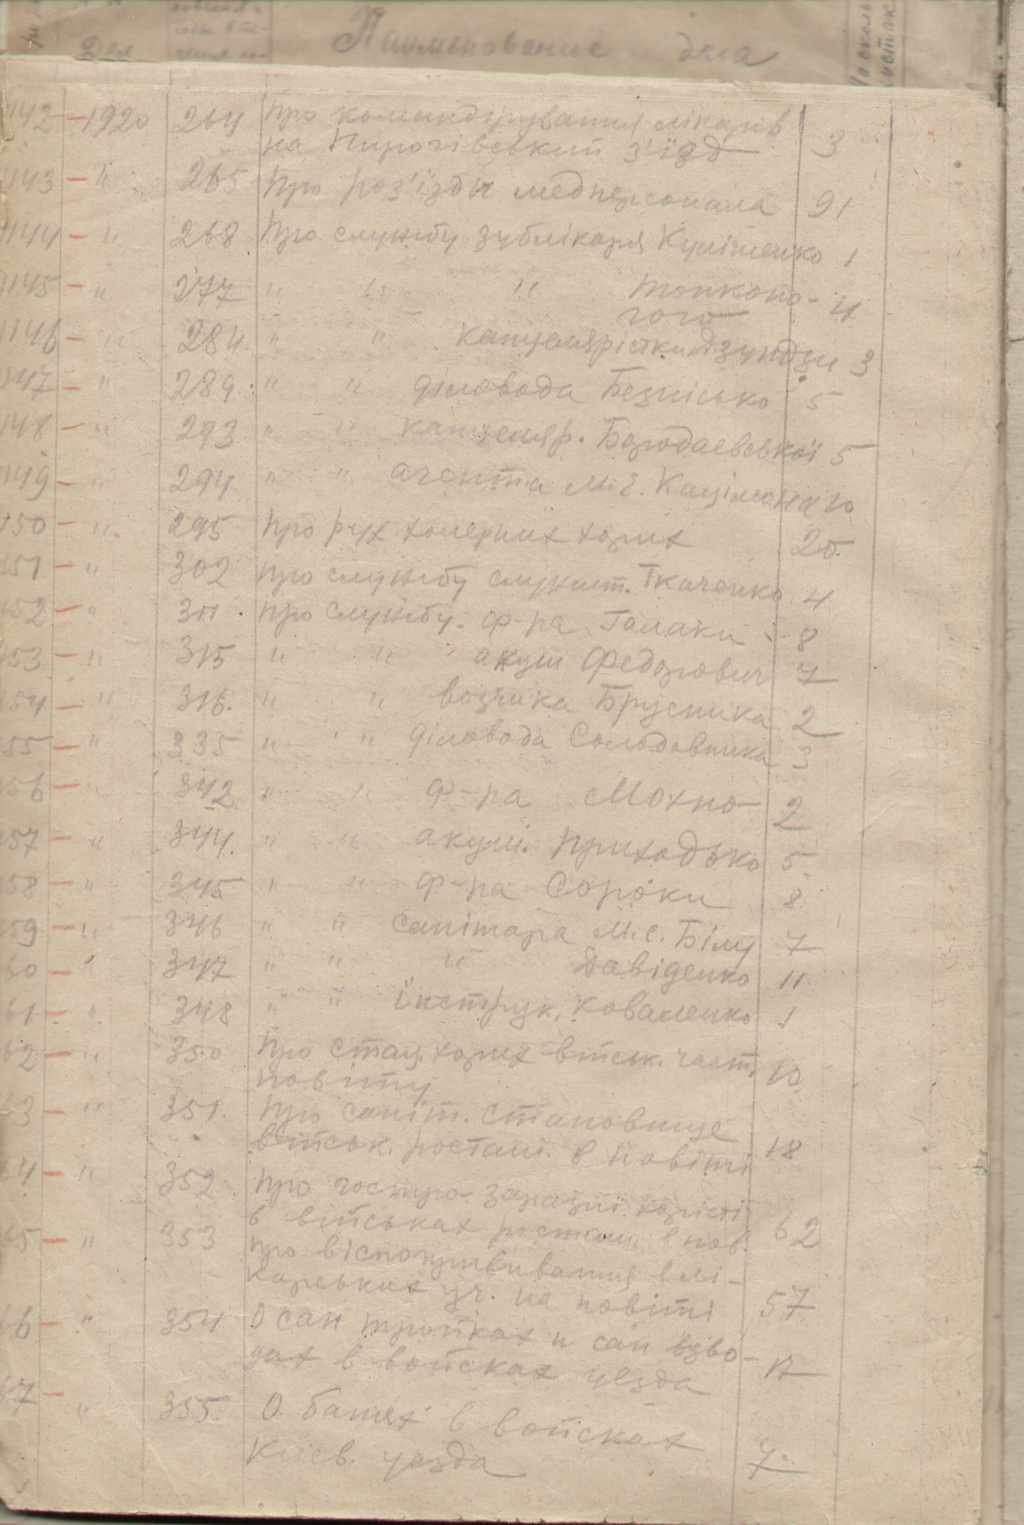 Дел
Наименование дела
142 - 1920 264 Про командірування лікарів
на Пирогівський з'їзд 3
143 - " 265 Про роз'їзди медперсонала 91
1144 - " 268 Про службу зублікаря 1
1145 - " 277 " " " Тонконо-
гого 4
1146 - " 284 " " канцелярістки 3
147 - " 289 " " діловода 5
148 - " 293 " " канцеляр. 5
149 - " 294 " " агента
150 - " 295 Про рух холерних хорих 20
151 - " 302 Про службу служит. Ткаченко 4
152 - " 311 Про службу ф-ра Галаки 8
153 - " 315 " " акуш Федорович 7
154 - " 316. " " возчика Брусника 2
155 - " 335 " " діловода Солодовника 3
156 - " 342 " " ф-ра Мохно 2
157 - " 344. " " акуш. Приходько 5
158 - " 345 " " ф-ра Сороки 8
159 - " 346 " " санітара М.С. Білу 7
60 - " 347 " " " Давіденко 11
61 - " 348 " " інструк. Коваленко 1
62 - " 350 Про стац. хорих війск. част.
повіту 10
63 - " 351. Про саніт. становище
військ. росташ. в повіті 18
64 - " 352 Про гостро-заразні хорісті
в військах росташ в пов. 62
65 - " 353 Про віспоприввивання в лі-
карських уч. на повіті 57
66 - " 354 О сан тройках и сан взво-
дах в войсках уезда
67 - " 355. О банях в войсках
Киев. уезда 7